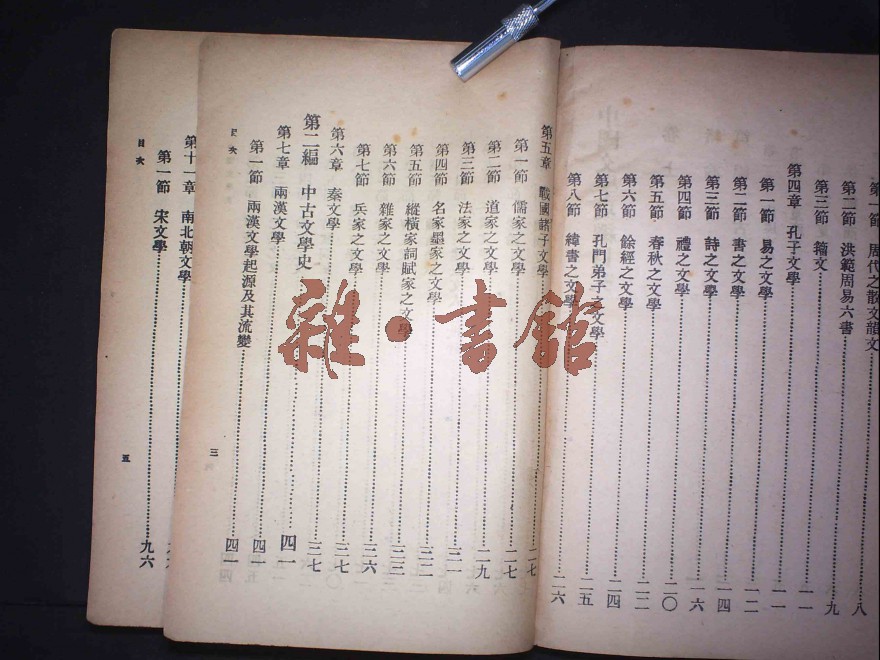 第一節 周代之散文韻文 八
第二節 洪範周易六書 九
第三節 籀文 一一
第四章 孔子文學 一一
第一節 易之文學 一一
第二節 書之文學 一二
第三節 詩之文學 一四
第四節 禮之文學 一六
第五節 春秋之文學 二〇
第六節 餘經之文學 二三
第七節 孔門弟子之文學 二四
第八節 緯書之文學 二六
第五章 戰國諸子文學 二七
第一節 儒家之文學 二七
第二節 道家之文學 二九
第三節 法家之文學 三一
第四節 名家墨家之文學 三二
第五節 縱橫家詞賦家之文學 三三
第六節 雜家之文學
第七節 兵家之文學 三六
第六章 秦文學 三七
第二編 中古文學史 三七
第七章 兩漢文學 四一
第一節 兩漢文學起源及其流變 四一
目次
三
第十一章 南北朝文學
第一節 宋文學 九六
目次
五
雜·書館